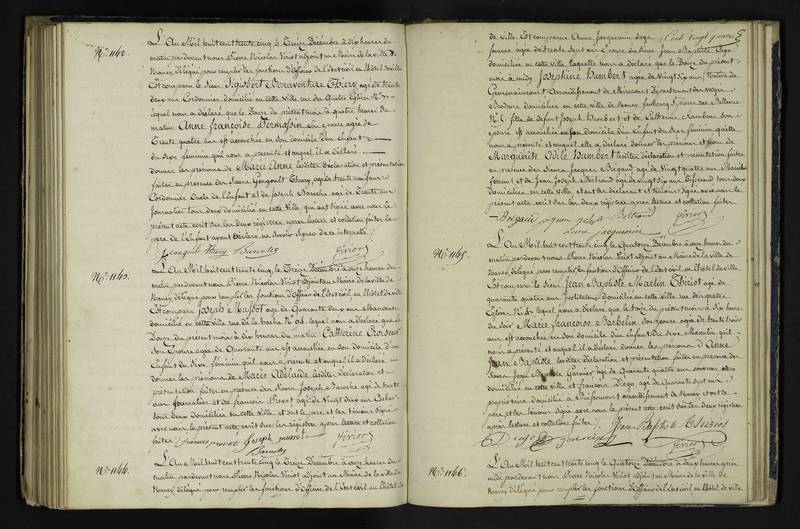 N.º 1142.
L'An Mil huit cent trente cinq le Treize Décembre à dix heures du
matin pardevant nous Pierre Nicolas Viriot adjoint au Maire de la ville de
Nancy délégué pour remplir les fonctions d'officier de l'état civil en l'hôtel de ville
Est comparu le Sieur Sigisbert Bonaventure Thiery, agé de trente
deux ans Cordonnier domicilié en cette Ville rue des quatre Eglises N.º
lequel nous a déclaré que le Douze du présent mois à quatre heures du
matin Anne Françoise son Epouse agée de
Trente quatre ans est accouchée en son domicile d'un Enfant
du sexe féminin qu'il nous a présenté et auquel il a déclaré
donner les prénoms de Marie Anne lesdites déclaration et présentation
faites en présence des Sieurs Gengoult Thiery agé de trente un ans
Cordonnier Oncle de l'Enfant et de Joseph agé de Trente ans
Journalier tous deux domiciliés en cette Ville, qui ont signé avec nous le
présent acte écrit sur les deux registres après lecture et collation faites le
père de l'Enfant ayant Déclaré ne savoir signer de ce interpellé
Gengoult Thiery Viriot
N.º 1143.
L'An Mil huit cent trente cinq le Treize Décembre à onze heures du
matin pardevant nous Pierre Nicolas Viriot adjoint au Maire de la ville de
Nancy délégué pour remplir les fonctions d'officier de l'état civil en l'hôtel de ville
Est comparu Joseph Mussot agé de Quarante deux ans Manoeuvre
domicilié en cette ville rue de la hache N.º 94. lequel nous a déclaré que le
Douze du présent mois à dix heures du matin Catherine
son Epouse agée de Quarante ans est accouchée en son domicile d'un
Enfant du sexe féminin qu'il nous a présenté et auquel il a déclaré
donner les prénoms de Marie Adelaïde lesdites déclaration et
présentation faites en présence des Sieurs Joseph agé de trente
ans Journalier et de François Pierot agé de vingt deux ans Cocher
tous deux domiciliés en cette ville et ont le père et les témoins signé
avec nous le présent acte écrit sur les deux registres après lecture et collation
faites Joseph mussot Viriot
N.º 1144.
L'An Mil huit cent trente cinq le Treize Décembre à onze heures du
matin pardevant nous Pierre Nicolas Viriot adjoint au Maire de la ville de
Nancy délégué pour remplir les fonctions d'officier de l'état civil en l'hôtel de
de ville Est comparue Anne Jacquemin Sage
femme agée de trente sept ans Epouse du Sieur Jean Baptiste
domiciliée en cette ville laquelle nous a déclaré que le Douze du présent
mois à midi Joséphine Humbert agée de Vingt six ans Native de
Arrondissement de Mirecourt Département des Vosges
Brodeuse domiciliée en cette ville de Nancy, faubourg S.t pierre rue
N.º 1. fille de défunt Joseph Humbert et de Catherine Chambrau son
épouse est accouchée en son domicile d'un Enfant du sexe féminin qu'elle
nous a présenté et auquel elle a déclaré donner les prénoms et nom de
Marguerite Odile Humbert lesdites déclaration et présentation faites
en présence des Sieurs Jacques Brégard agé de Vingt quatre ans Maréchal
ferrant et de Jean Joseph Bertrand agé de Vingt six ans tous deux
domiciliés en cette ville et ont les déclarant et témoins signé avec nous le
présent acte écrit sur les deux registres après lecture et collation faites
Brégard Bertrand Viriot
anne jacquemin
N.º 1145.
L'An Mil huit cent trente cinq le Quatorze Décembre à onze heures du
matin pardevant nous Pierre Nicolas Viriot adjoint au Maire de la ville de
Nancy délégué pour remplir les fonctions d'officier de l'état civil en l'hôtel de ville
Est comparu le Sieur Jean Baptiste Martin Thiriot agé de
quarante quatre ans Instituteur domicilié en cette ville rue des quatre
Eglises N.º lequel nous a déclaré que le treize du présent mois à six heures
du soir Marie Françoise Barbelin son épouse agée de trente trois
ans est accouchée en son domicile d'un Enfant du sexe Masculin qu'il
nous a présenté et auquel il a déclaré donner les prénoms d'Anne
Jean Baptiste lesdites déclaration et présentation faites en présence des
Sieurs Jean Baptiste agé de Quarante quatre ans
domicilié en cette ville et François Diego agé de Quarante sept ans
propriétaire domicilié à arrondissement de Nancy et ont le
père et les témoins signé avec nous le présent acte écrit sur les deux registres
après lecture et collation faites Jean Baptiste Thiriot
Diego Viriot
N.º 1146.
L'An Mil huit cent trente cinq le Quatorze Décembre à deux heures après
midi pardevant nous Pierre Nicolas Viriot adjoint au Maire de la ville de
Nancy délégué pour remplir les fonctions d'officier de l'état civil en l'hôtel de ville